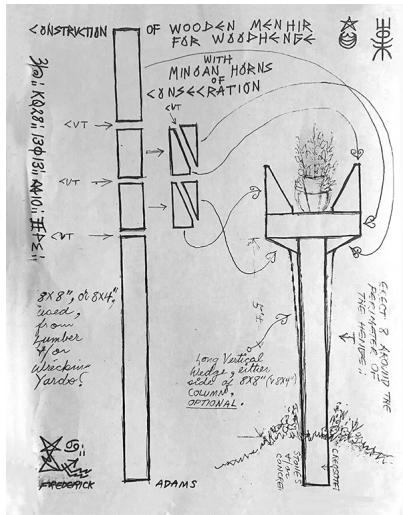 CONSTRUCTION OF WOODEN MENHIR
FOR WOODHENGE
WITH
MINOAN HORNS
OF
CONSECRATION
CVT
CVT
CVT
CVT
8X8", OR 8X4",
used,
from
Lumber
&/or
Wrecking
Yards.
Long Vertical
Wedge, either
side of 8X8" (or 8X4")
COLUMN,
OPTIONAL.
5'4
ERECT 8 AROUND THE
PERIMETER OF
THE HENGE
STONES
&/OR
CONCRETE
CREOSOTE
FREDERICK ADAMS